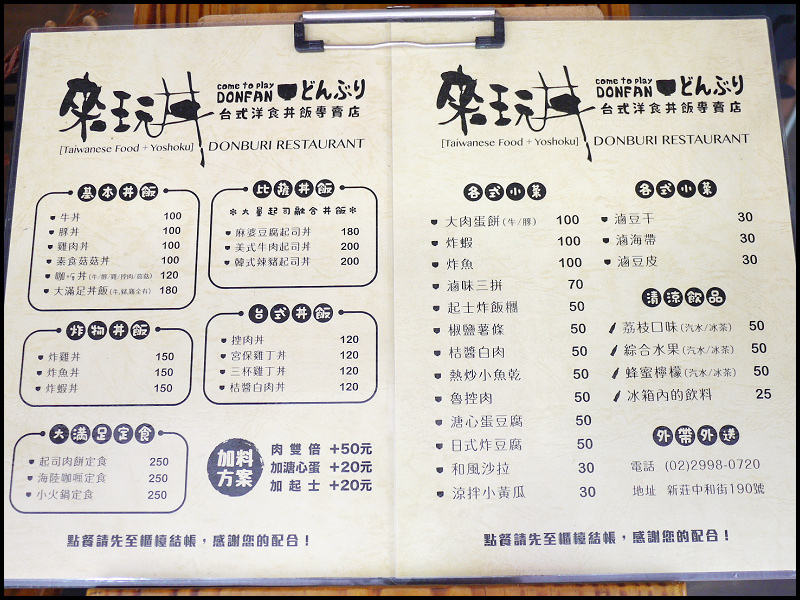 來玩丼
come to play
DONFAN どんぶり
台式洋食丼飯專賣店
[Taiwanese Food + Yoshoku] DONBURI RESTAURANT
基本丼飯
牛丼 100
豚丼 100
雞肉丼 100
素食菇菇丼 100
咖哩丼(牛/豚/雞/控肉/菇菇) 120
大滿足丼飯(牛,豬,雞全有) 180
炸物丼飯
炸雞丼 150
炸魚丼 150
炸蝦丼 150
大滿足定食
起司肉餅定食 250
海陸咖喱定食 250
小火鍋定食 250
比薩丼飯
*大量起司融合丼飯*
麻婆豆腐起司丼 180
美式牛肉起司丼 200
韓式辣豬起司丼 200
台式丼飯
控肉丼 120
宮保雞丁丼 120
三杯雞丁丼 120
桔醬白肉丼 120
加料方案
肉雙倍 +50元
加溏心蛋 +20元
加起士 +20元
點餐請先至櫃檯結帳，感謝您的配合！
來玩丼
come to play
DONFAN どんぶり
台式洋食丼飯專賣店
[Taiwanese Food + Yoshoku] DONBURI RESTAURANT
各式小菜
大肉蛋餅(牛/豚) 100
炸蝦 100
炸魚 100
滷味三拼 70
起士炸飯糰 50
椒鹽薯條 50
桔醬白肉 50
熱炒小魚乾 50
魯控肉 50
溏心蛋豆腐 50
日式炸豆腐 50
和風沙拉 30
涼拌小黃瓜 30
各式小菜
滷豆干 30
滷海帶 30
滷豆皮 30
清涼飲品
荔枝口味(汽水/冰茶) 50
綜合水果(汽水/冰茶) 50
蜂蜜檸檬(汽水/冰茶) 50
冰箱內的飲料 25
外帶外送
電話 (02)2998-0720
地址 新莊中和街190號
點餐請先至櫃檯結帳，感謝您的配合！